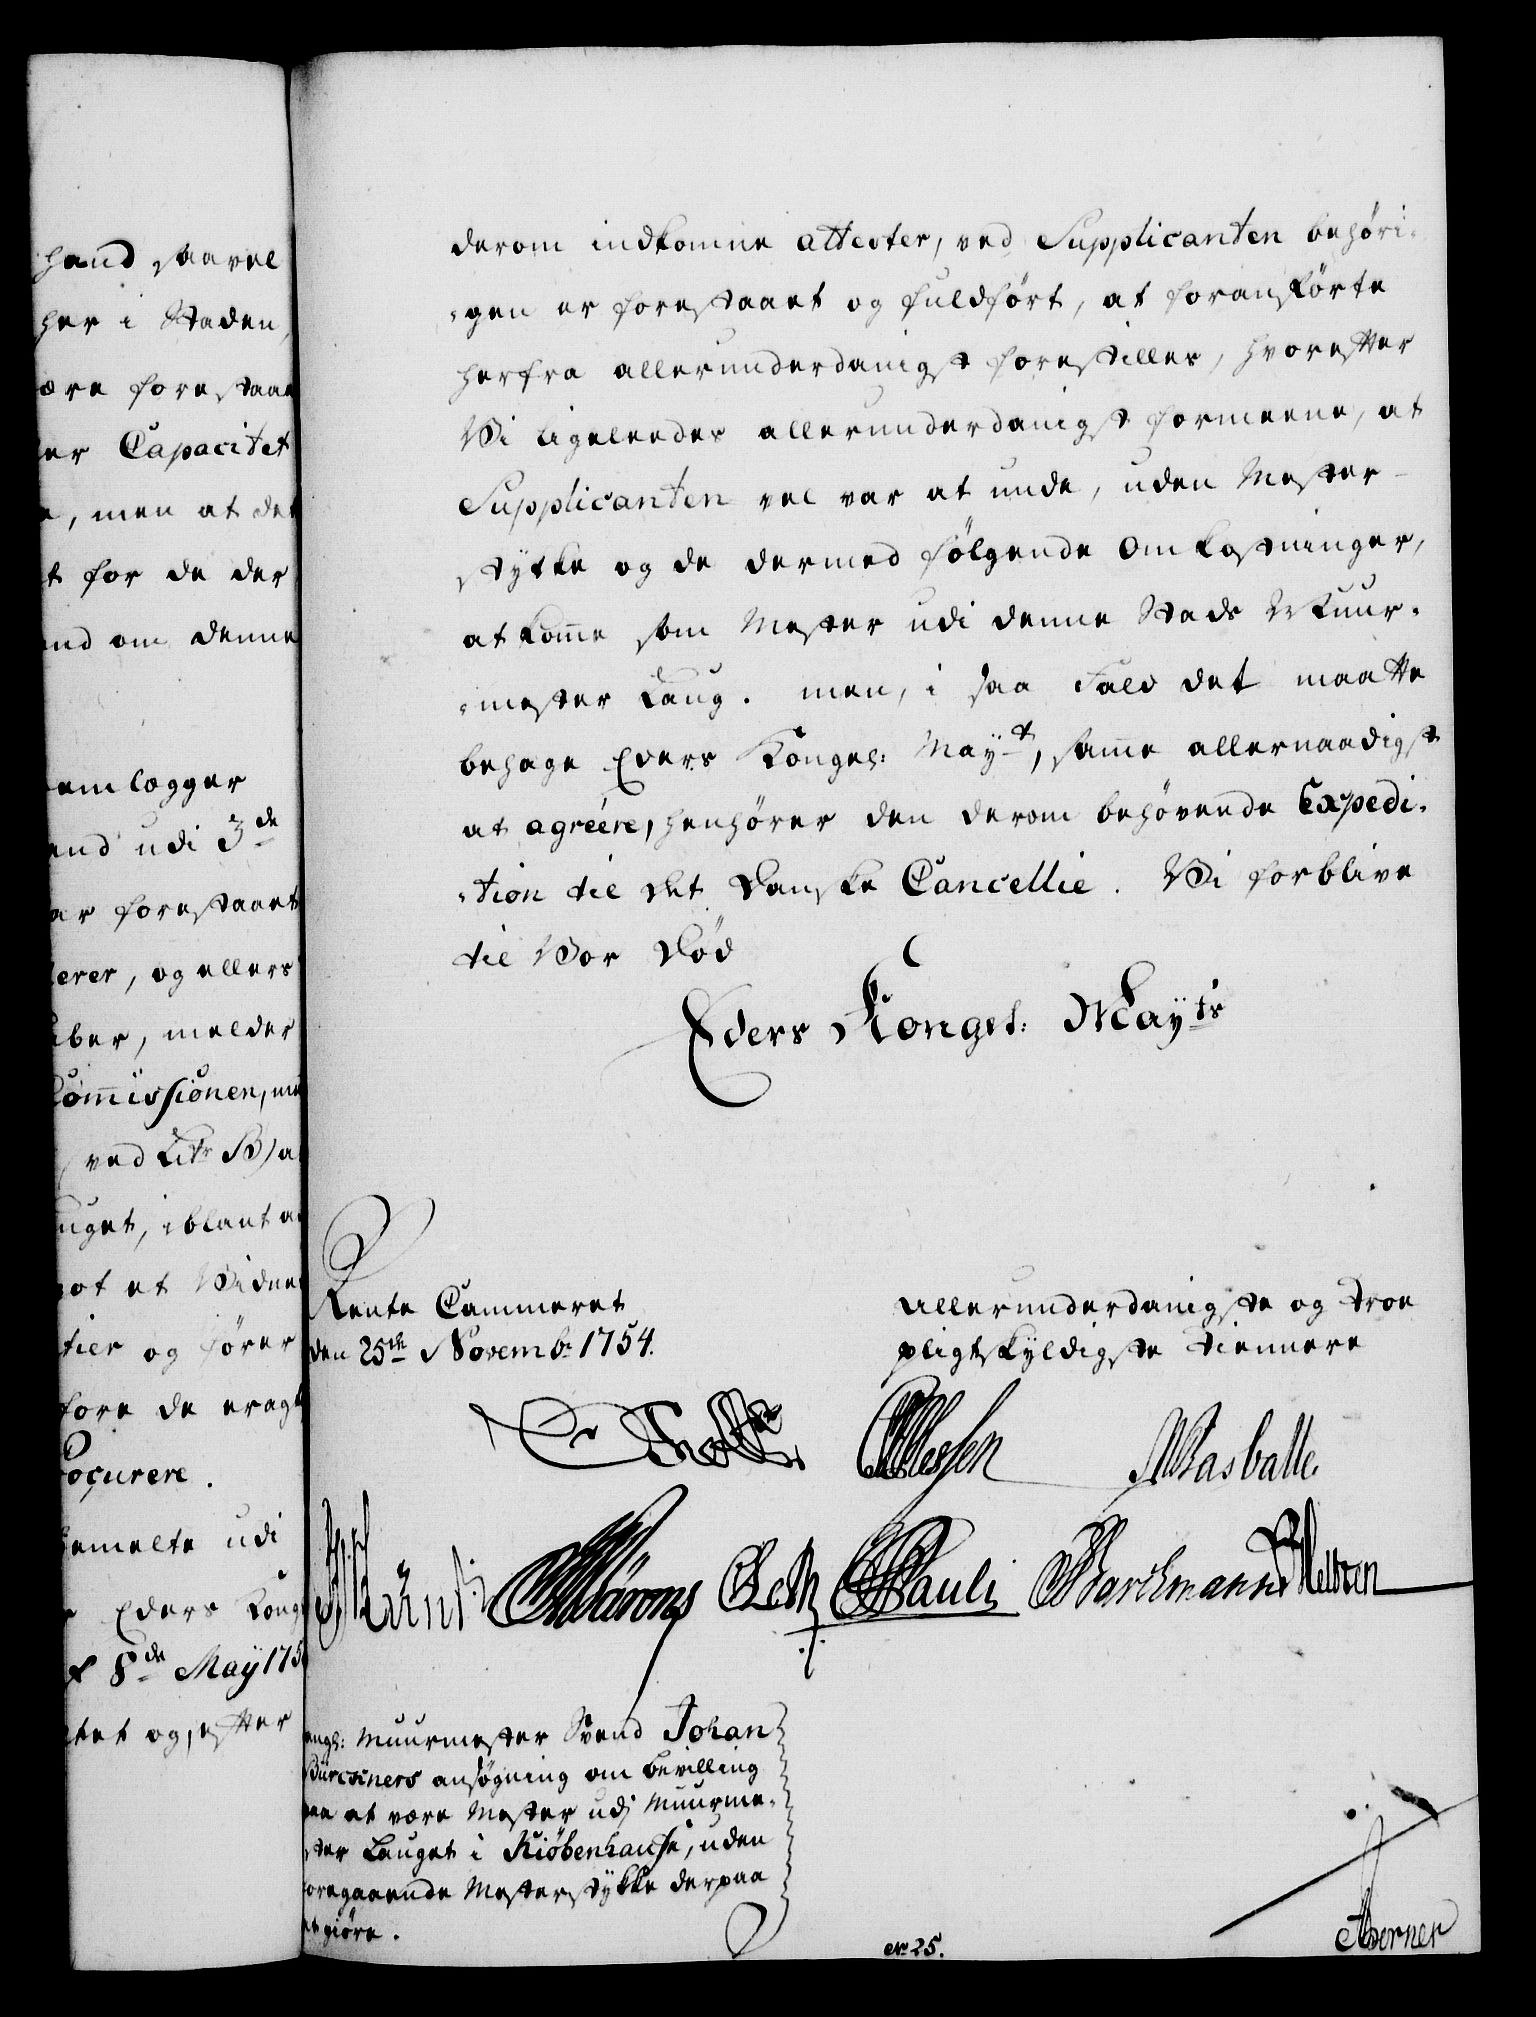 hand saavel
her i Staden,
ære forestaae
er Capacitet
, men at det
t for de der
end om denne
emlægger
end udi 3de
ar forestaaet
erer, og ellers
ber, melder
Commissionen, me
(ved Litr B) a
uget, iblant a
ot et Vidne
tier og fører
fore de eragt
Procurere.
hemelte udi
Eders Kong
8de Maÿ 175
tet og, efter
derom indkomne attester, ved Supplicanten behöri-
-gen er forestaaet og fuldfört, at foranförte
herfra allerunderdanigst forestilles, hvorefter
Vi ligeleedes allerunderdanigst formeene, at
Supplicanten vel var at unde, uden Mester-
stykke og de dermed fölgende Omkostninger,
at komme som Mester udi denne Stads Muur-
-mester Laug. men, i saa Fald det maatte
behage Eders Kongel: Maÿt, samme allernaadigst
at agréere, henhörer den derom behövende Expedi-
-tion til det Danske Cancellie. Vi forblive
til Vor Död
Eders Kongel: Maÿts
Rente Cammeret
den 25de Novembr 1754.
Allerunderdanigste og troe
pligtskyldigste tiennere
Holst
Olessen
Wasballe
Pauli
Barchmann
ang: Muurmester Svend Johan
Bürcsners ansögning om bevilling
paa at være Mester udj Muurme-
ster Lauget i Kiöbenhaufn, uden
foregaaende Mesterstykke derpaa
at giöre.
No 25.
Aberner